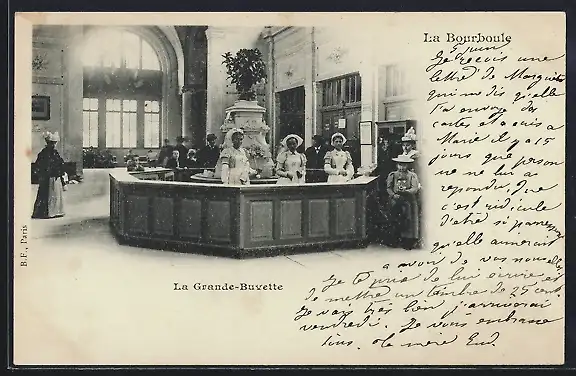 La Bourboule
5 juin
Je reçois une
lettre de Marguerite
qui me dis qu'elle
t'a envoyé des
cartes et aussi a
Marie il y a 15
jours que personne
ne lui a
répondu. Que
c'est ridicule
d'être si paresseux
qu'elle aimerait
a avoir de vos nouvelles
Je te prie de lui écrire et
de mettre un timbre de 25 cent.
Je vais très bien j'arriverai
vendredi. Je vous embrasse
tous.
La Grande-Buvette
B.F., Paris